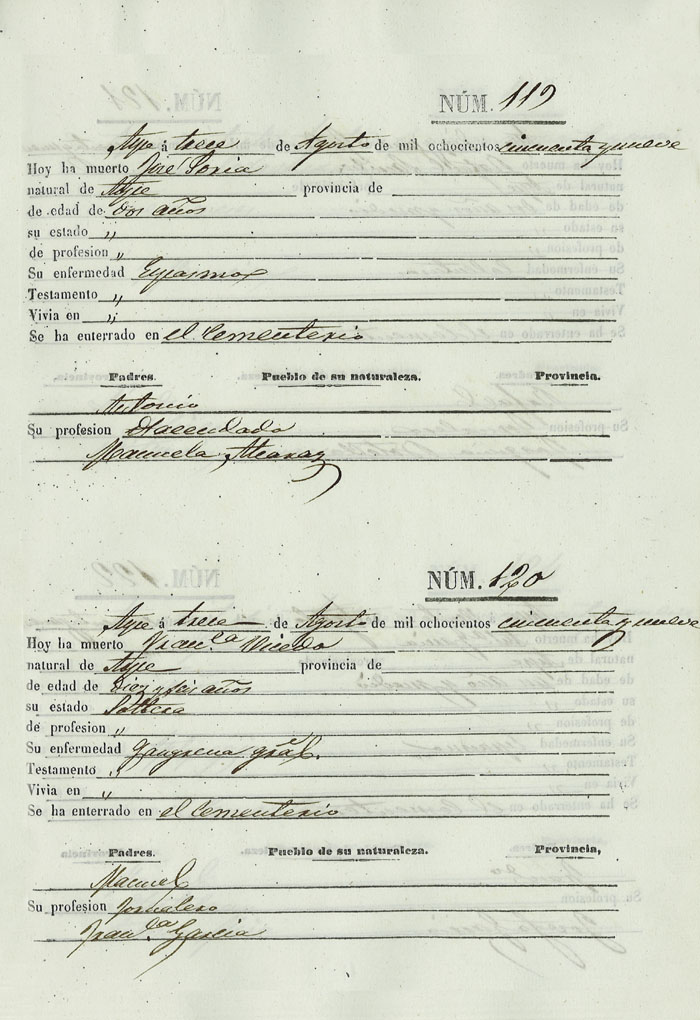 NÚM. 119
Aspe á trece de Agosto de mil ochocientos cincuenta y nueve
Hoy ha muerto José Soria
natural de Aspe provincia de
de edad de dos años
su estado "
de profesion "
Su enfermedad Espasmos
Testamento "
Vivia en "
Se ha enterrado en el Cementerio
Padres. Pueblo de su naturaleza. Provincia.
Antonio
Su profesion Hacendado
Manuela
NÚM. 120
Aspe á trece de Agosto de mil ochocientos cincuenta y nueve
Hoy ha muerto Fran.ca Vicedo
natural de Aspe provincia de
de edad de diez y seis años
su estado Soltera
de profesion "
Su enfermedad Gangrena gral.
Testamento "
Vivia en "
Se ha enterrado en el Cementerio
Padres. Pueblo de su naturaleza. Provincia,
Manuel
Su profesion Jornalero
Fran.ca Garcia